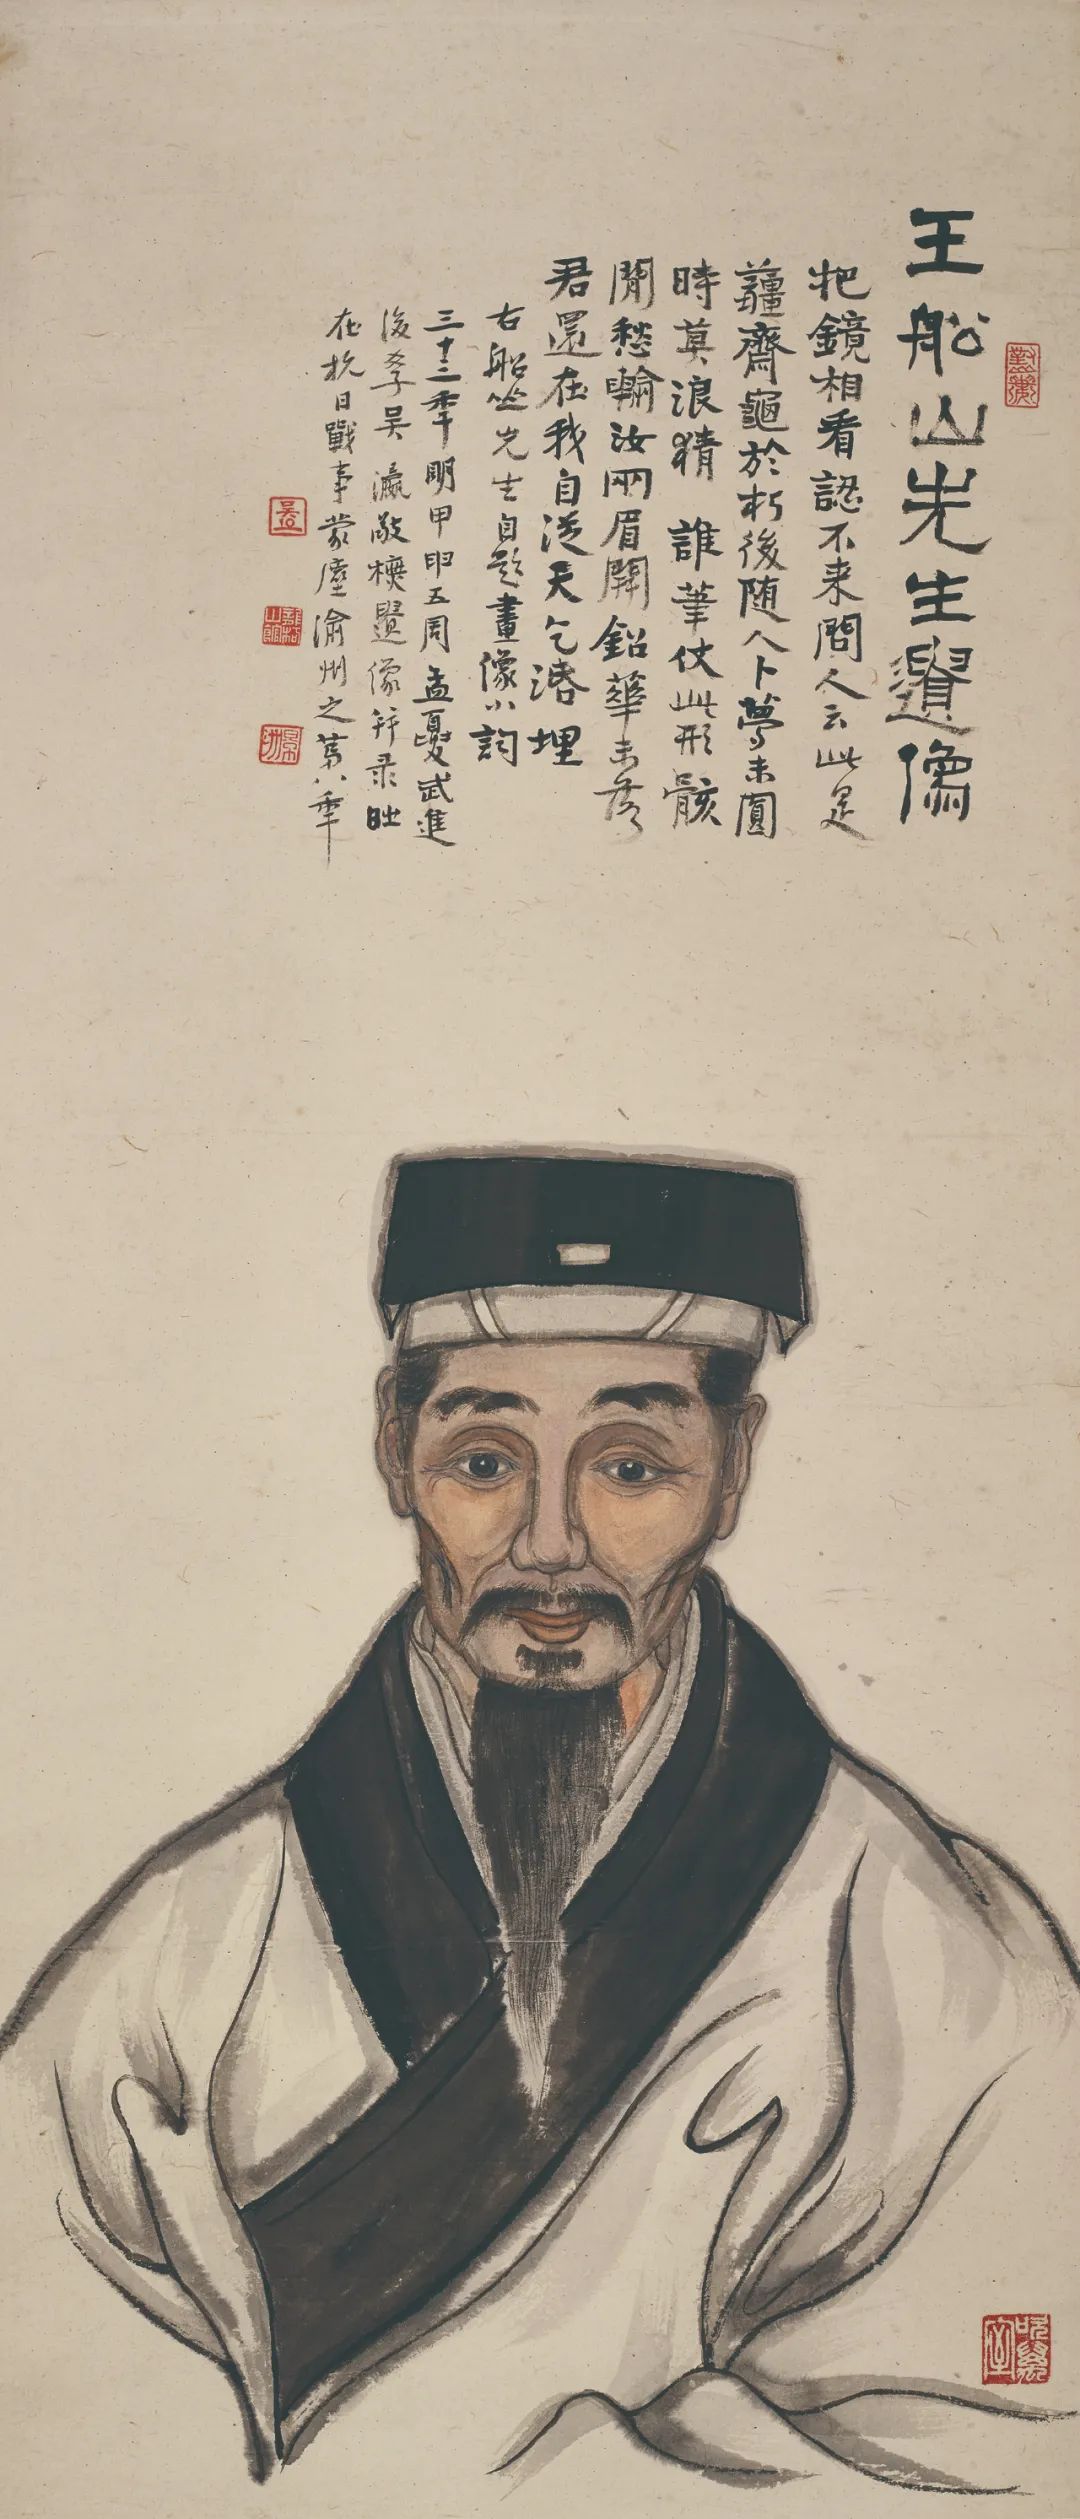 王船山先生遺像
把鏡相看認不來問人云此是
薑齋龜於朽後随人卜夢未圓
時莫浪猜 誰筆仗此形骸
閒愁輸汝兩眉開鉛華未落
君還在我自從天乞活埋
右船山先生自題畫像小詞
三十二年明甲申五周孟夏武進
後學吴瀛敬橅遺像并录時
在抗日戰事蒙塵渝州之第八年